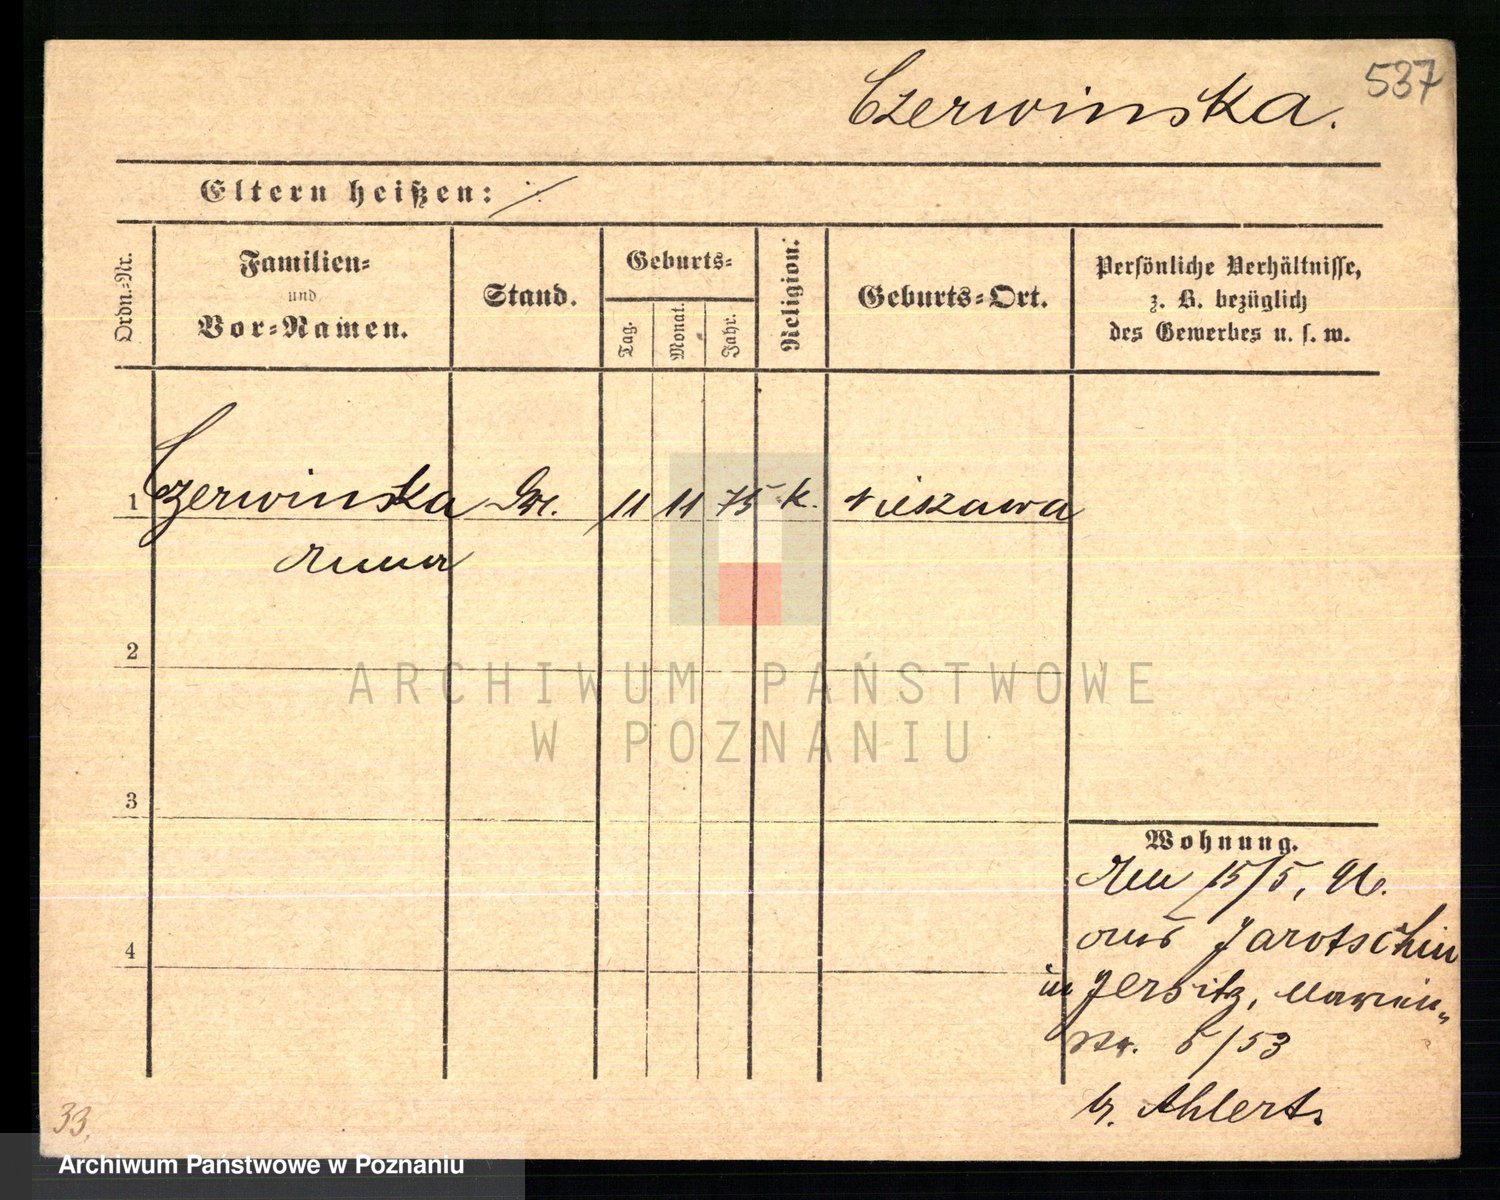 537
Czerwinska.
Eltern heißen: ./.
Ordn.=Nr.
Familien=
und
Vor=Namen.
Stand.
Geburts=
Tag.
Monat.
Jahr.
Religion.
Geburts=Ort.
Persönliche Verhältnisse,
z. B. bezüglich
des Gewerbes u. s. w.
1 Czerwinska 11 11 75 k. Nieszawa
Anna
2
ARCHIWUM PAŃSTWOWE
W POZNANIU
3
4
Wohnung.
Am 15/5, 96.
aus Jarotschin
in Jersitz, Marien=
str. 5/53
b. Ahlert.
33.
Archiwum Państwowe w Poznaniu